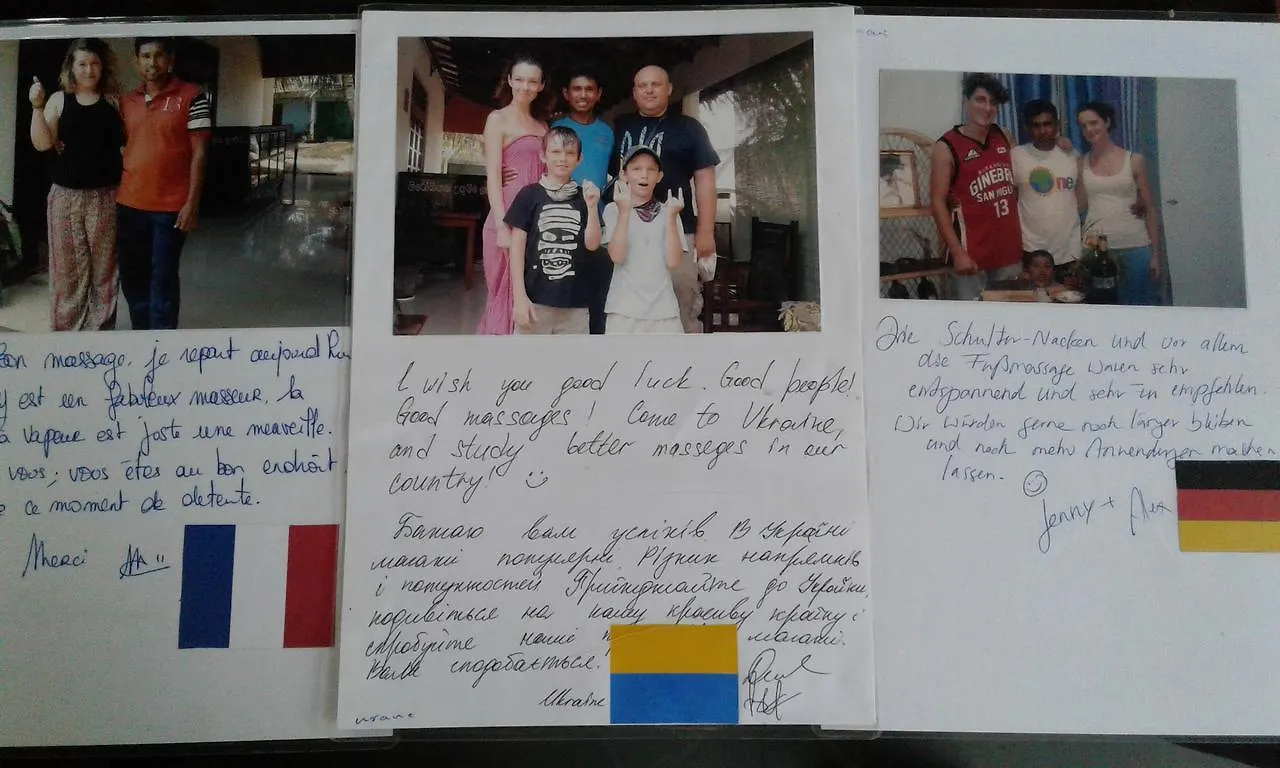 Bon massage, je repart aujourd'hu
y est un fabuleux masseur, la
a vapeur est juste une merveille.
vous; vous êtes au bon endroit
ce moment de detente.
Merci
I wish you good luck. Good people!
Good massages! Come to Ukraine,
and study better masseges in our
country! ☺
Бажаю вам успіхів. В Україні
масажі популярні. Різних напрямків
і потужностей. Приїжджайте до України,
подивіться на нашу красиву країну і
спробуйте наші масажі.
Вам сподобається!
Ukraine
Die Schulter-Nacken und vor allem
die Fußmassage waren sehr
entspannend und sehr zu empfehlen.
Wir würden gerne noch länger bleiben
und noch mehr Anwendungen machen
lassen. ☺
Jenny + Alex
GINEBRA
SAN MIGU
13
One